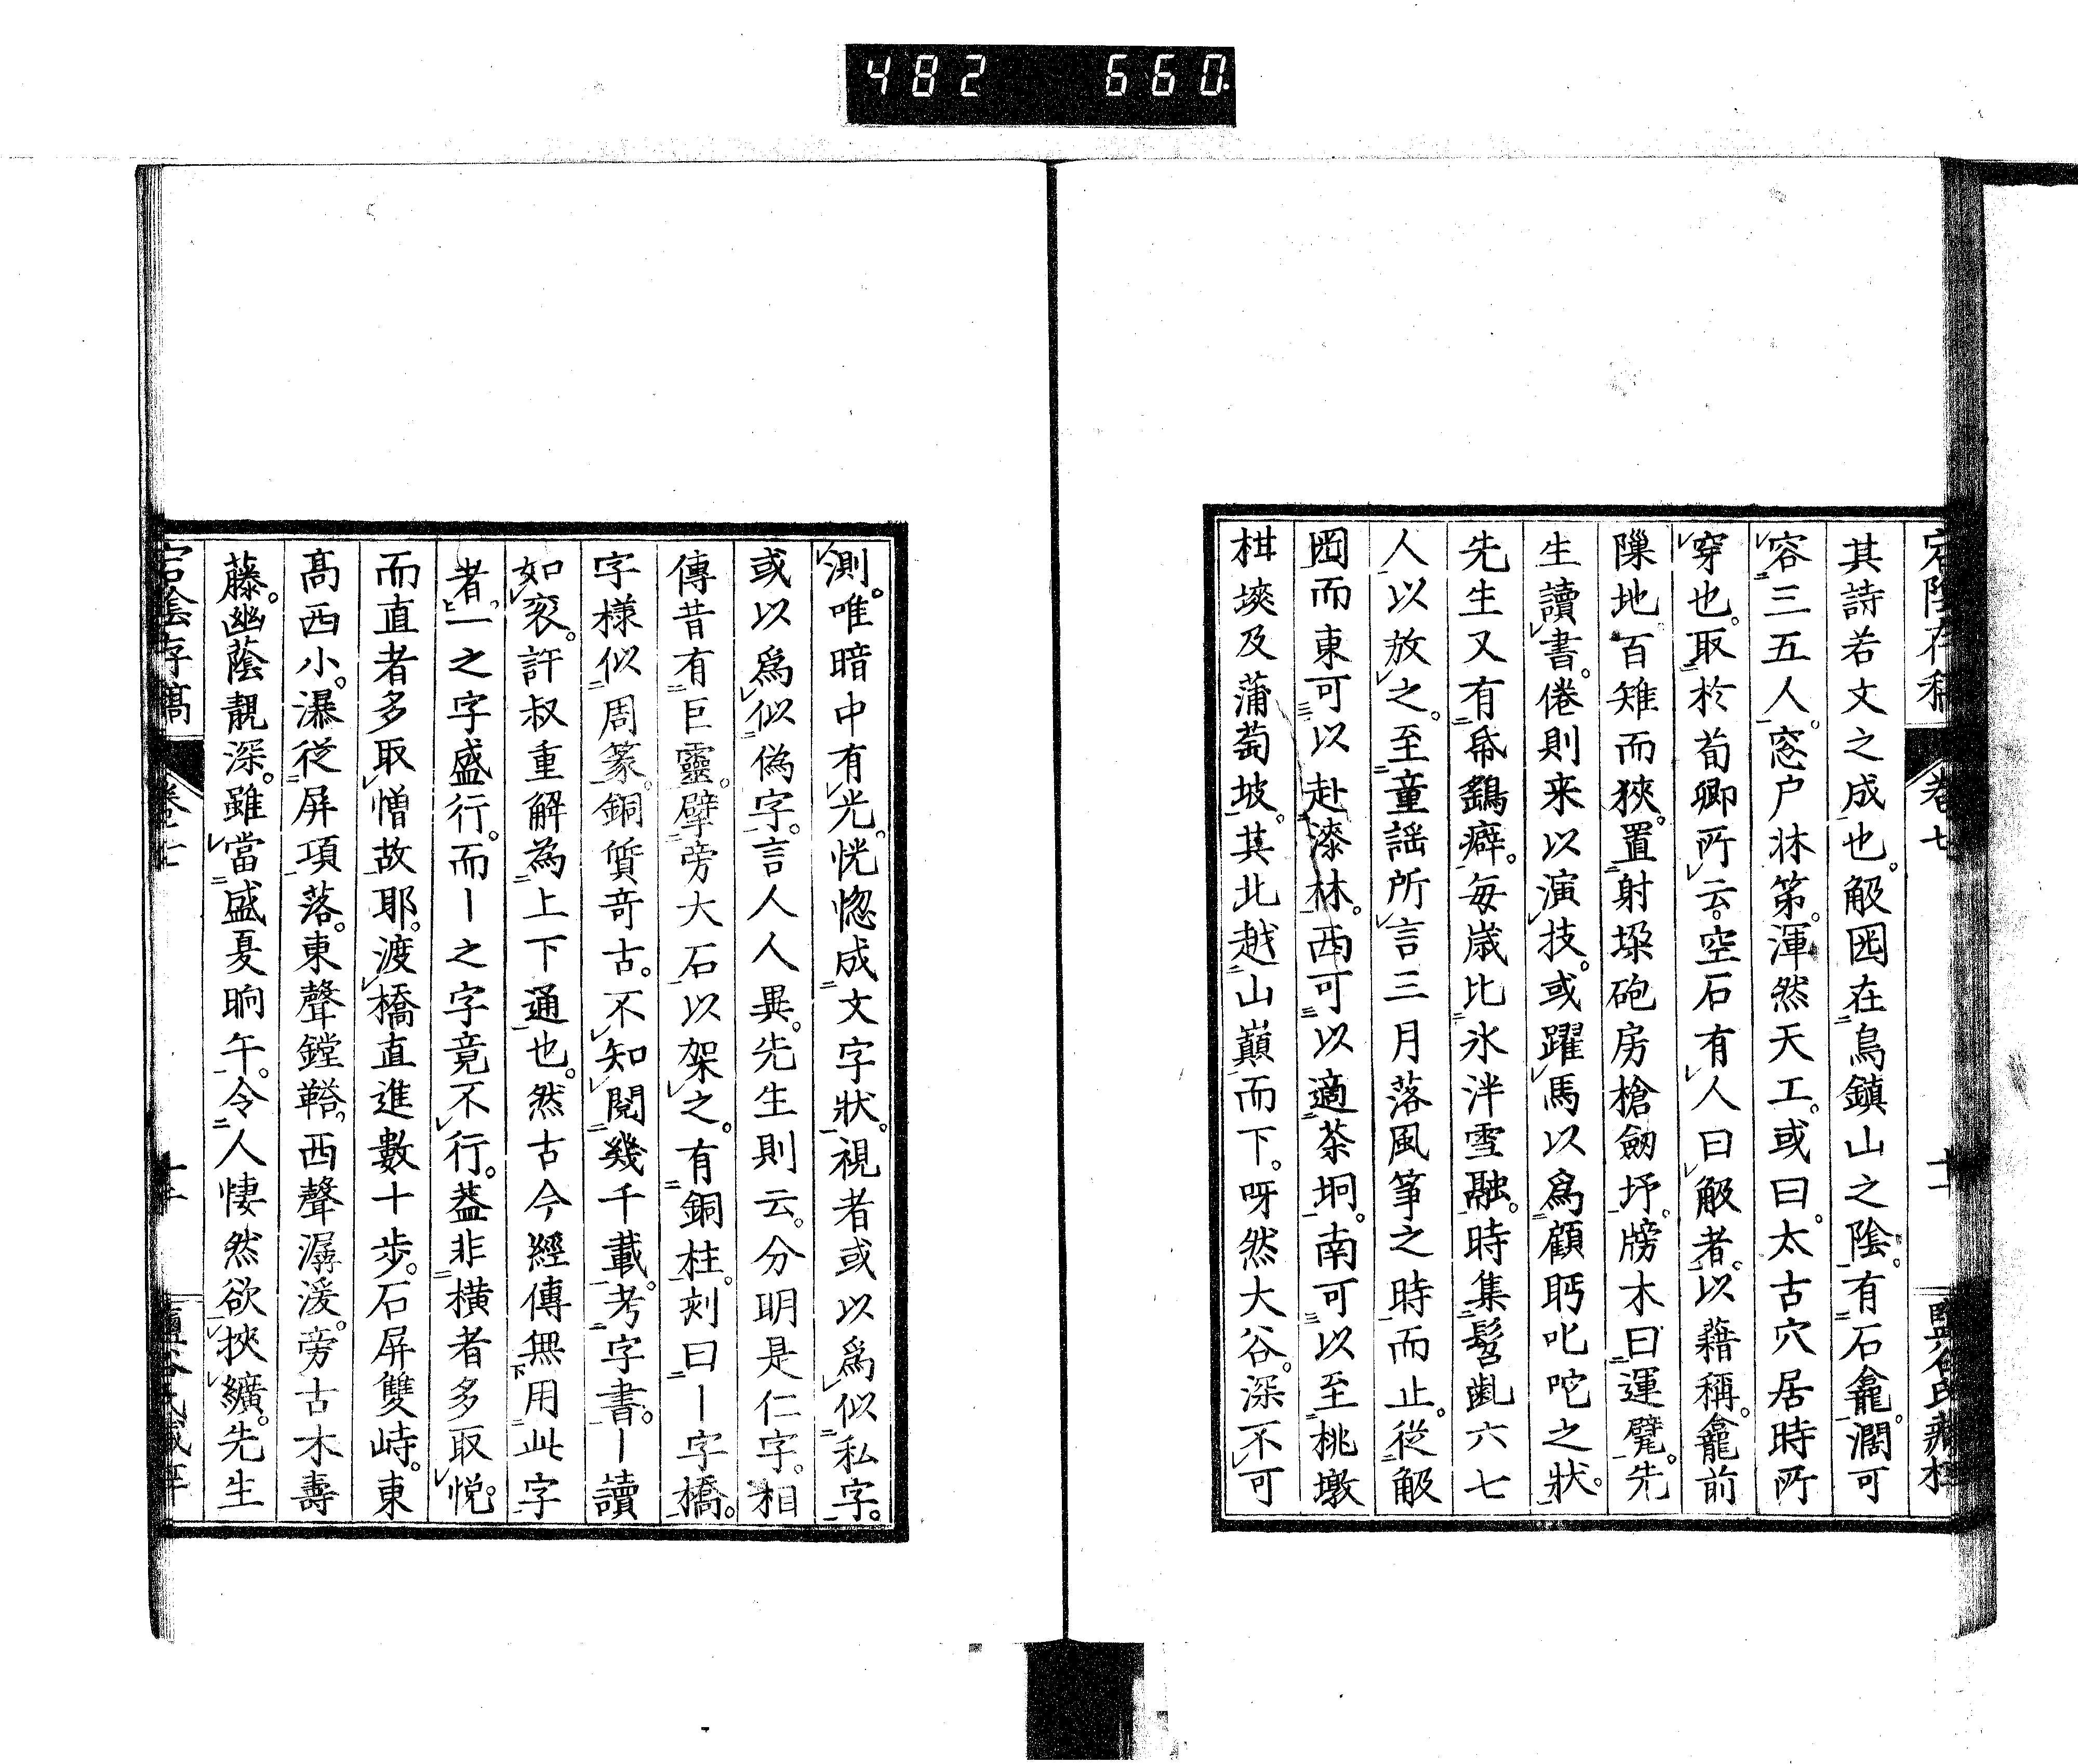 482 660
宕陰存稿 卷七 十一
其詩若文之成也。觙園在鳥鎮山之陰。有石龕。濶可
容三五人。窓户牀第。渾然天工。或曰。太古穴居時所
穿也。取於荀卿所云。空石有人曰觙者。以藉稱。龕前
隟地百雉而狹。置射垜砲房槍劔圩。牓木曰運甓。先
生讀書。倦則来以演技。或躍馬以爲顧眄叱咜之狀。
先生又有帋鷂癖。每歳比氷泮雪融。時集髫齓六七
人以放之。至童謡所言三月落風筝之時而止。從觙
園而東可以赴漆林。西可以適茶坰。南可以至桃墩
柑堧及蒲萄坡。其北越山巓而下。呀然大谷。深不可
測。唯暗中有光。恍惚成文字狀。視者或以爲似私字。
或以爲似偽字。言人人異。先生則云。分明是仁字。相
傳昔有巨靈。擘旁大石以架之。有銅柱。刻曰丨字橋。
字様似周篆。銅質竒古。不知閲幾千載。考字書。丨讀
如衮。許叔重解為上下通也。然古今經傳無用此字
者。一之字盛行。而丨之字竟不行。葢非横者多取悅。
而直者多取憎故耶。渡橋直進數十歩。石屏雙峙。東
髙西小。瀑從屏項落。東聲鏜鞳。西聲潺湲。旁古木壽
藤。幽蔭靚深。雖當盛夏晌午。令人悽然欲挾纊。先生
宕陰存稿 卷七